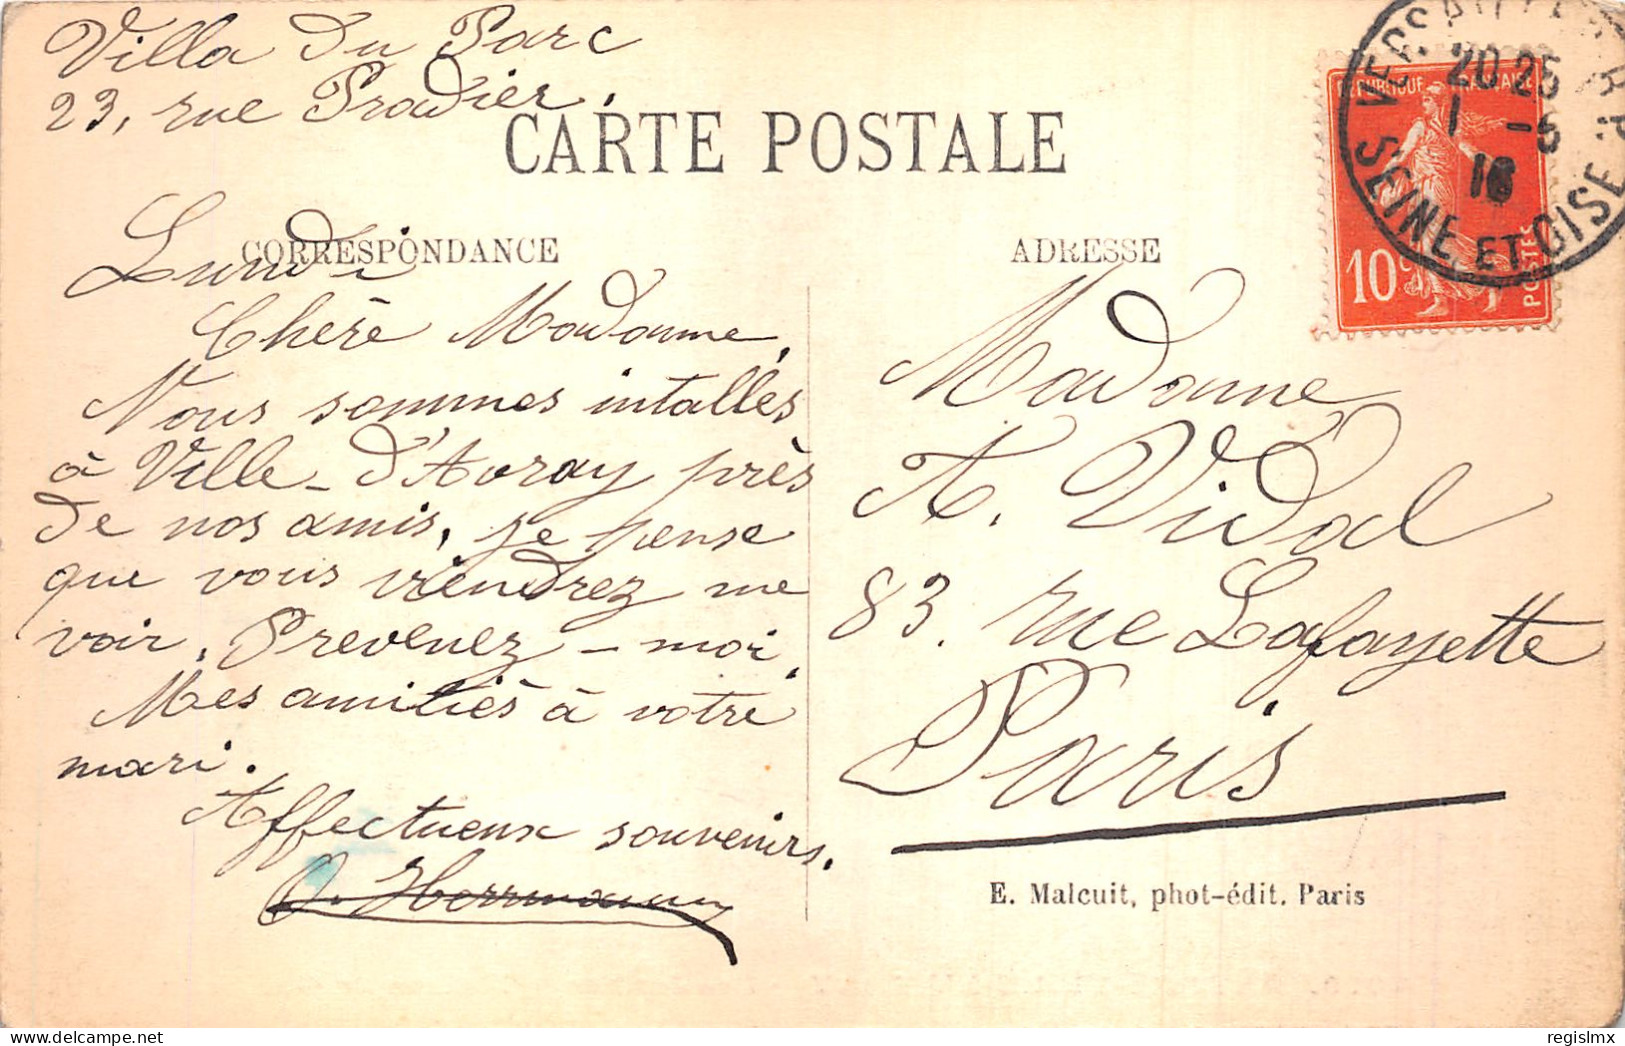 Villa du Parc
23, rue Pradier.
CARTE POSTALE
CORRESPONDANCE
Lundi
Chère Madame,
Nous sommes intallés
à Ville-d'Avray près
de nos amis, je pense
que vous viendrez me
voir. Prevenez-moi.
Mes amitiés à votre
mari.
Affectueux souvenirs.
Herrmann
ADRESSE
Madame
A. Vidal
83. rue Lafayette
Paris
E. Malcuit, phot-édit. Paris
REPUBLIQUE FRANÇAISE
10c
POSTES
VERSAILLES
20 25
1 -5
16
SEINE ET OISE
regislmx